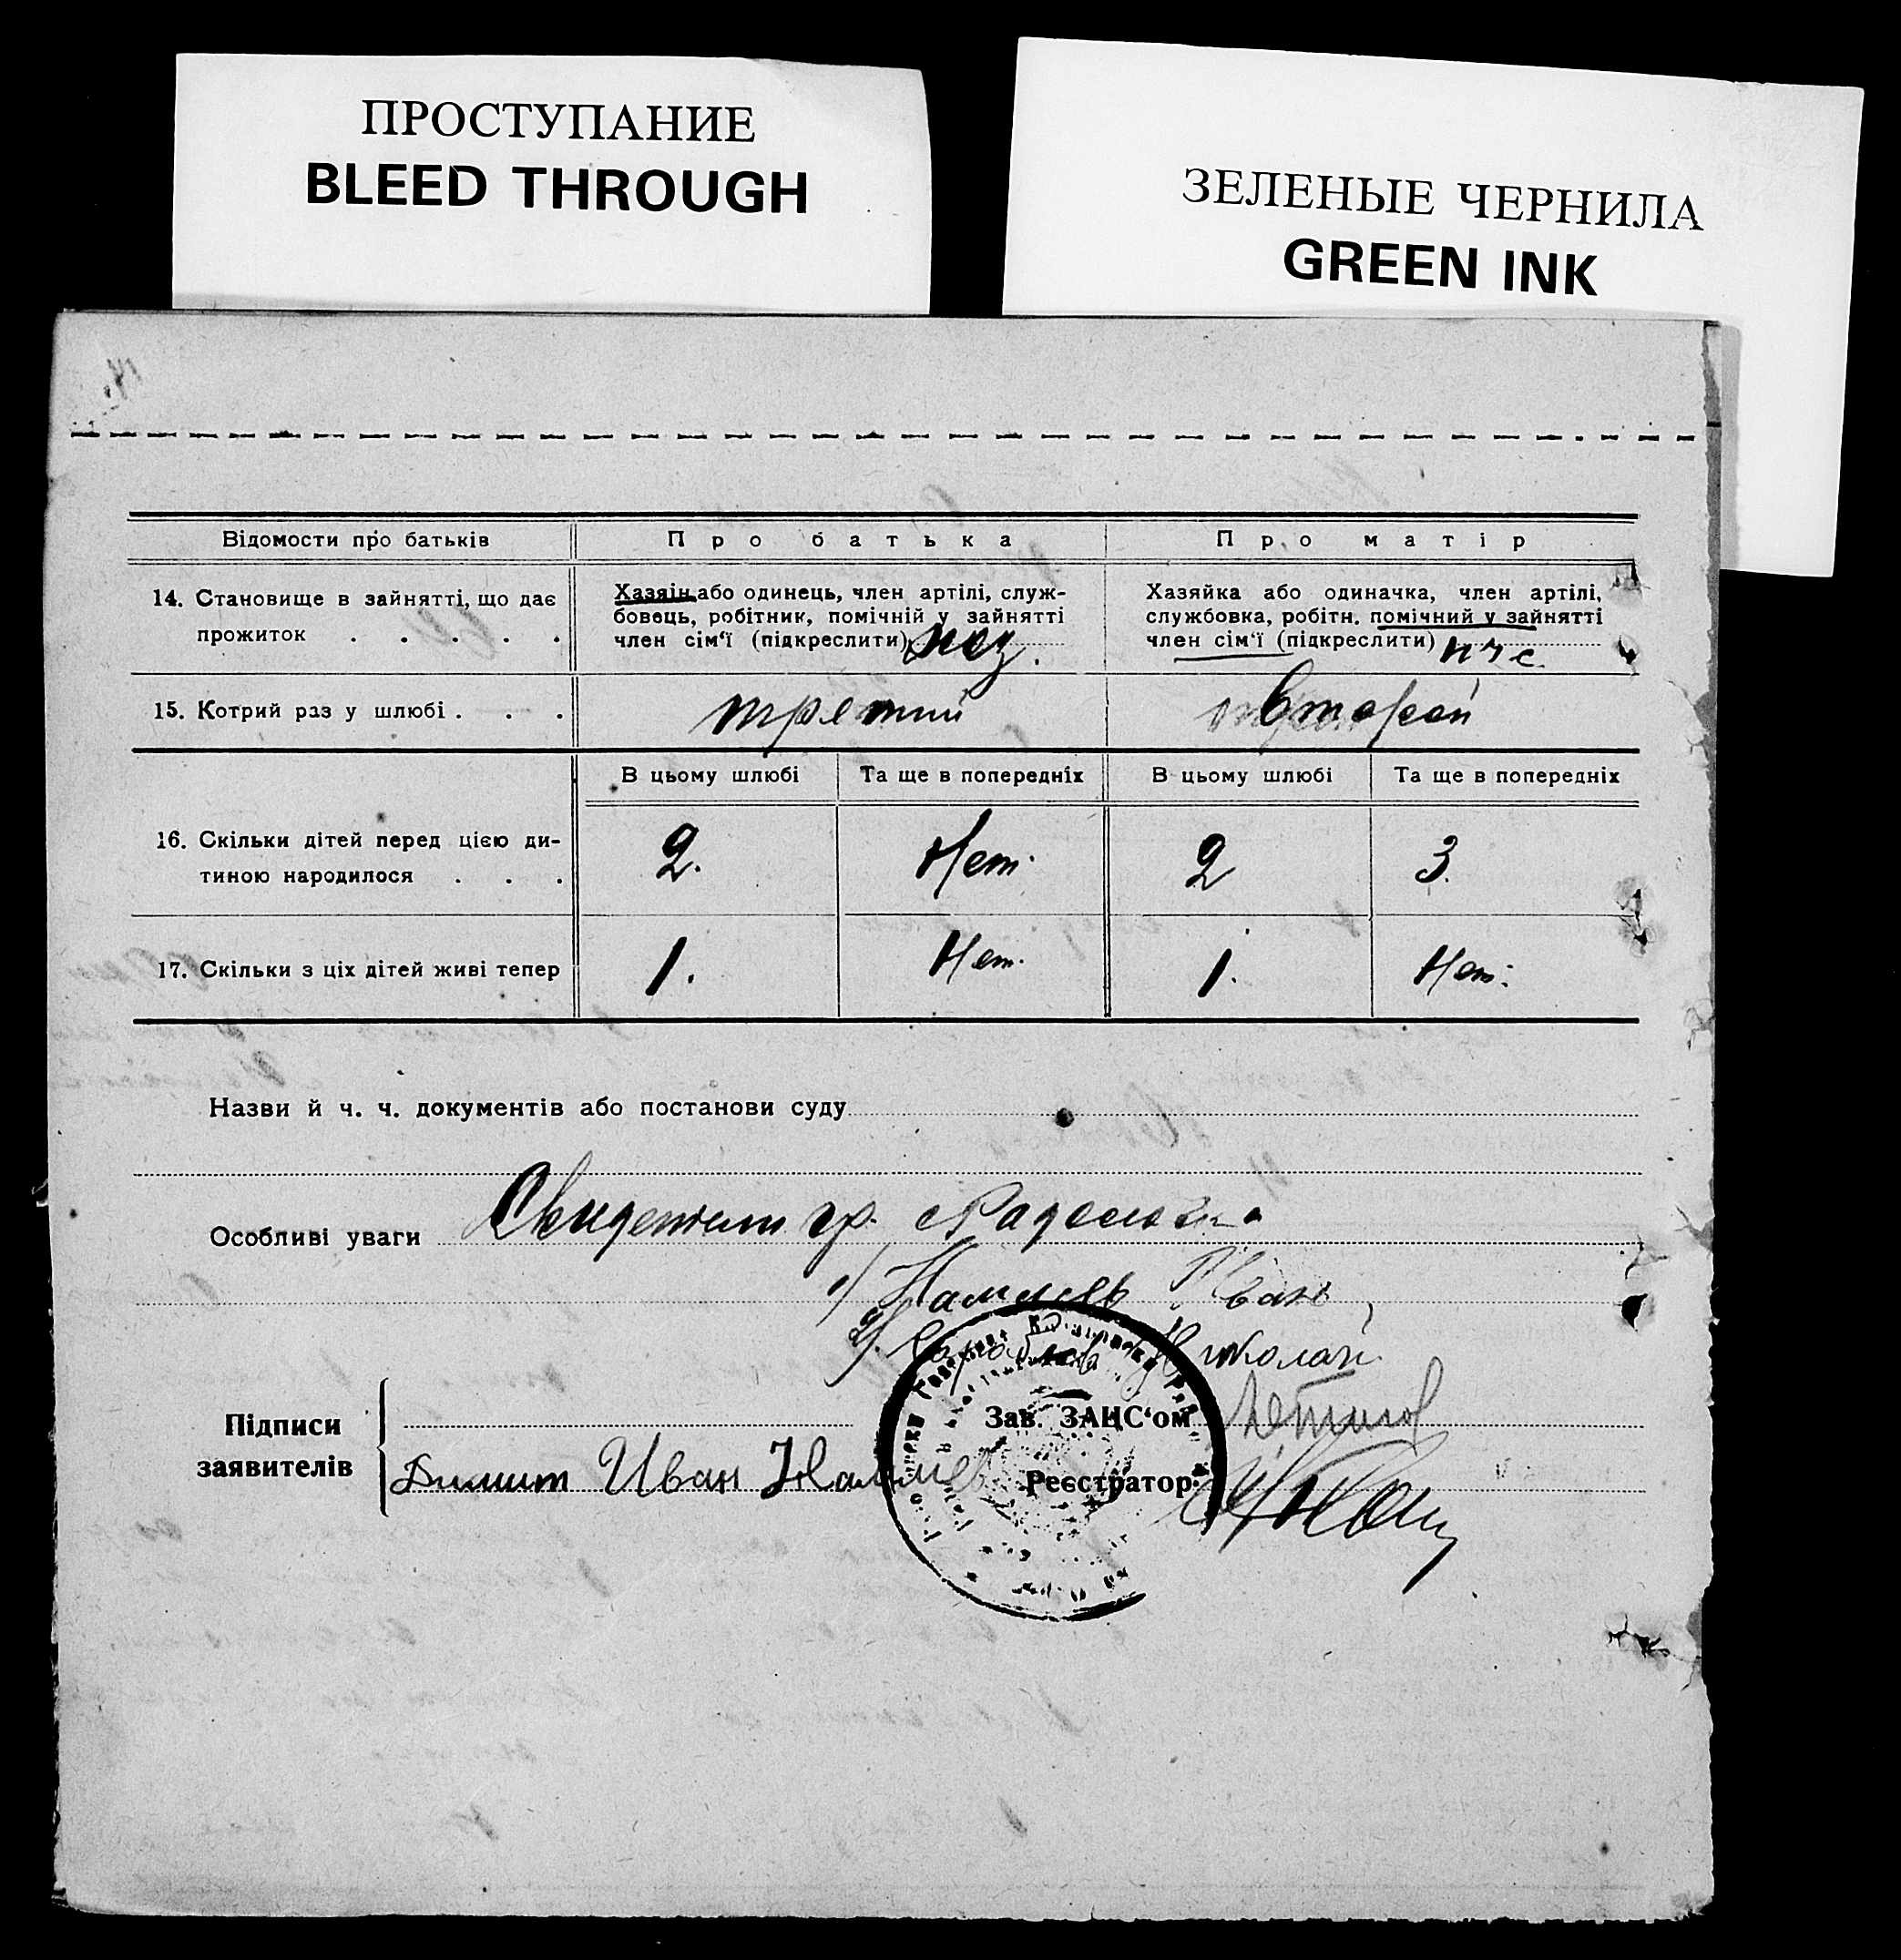 ПРОСТУПАНИЕ
BLEED THROUGH
ЗЕЛЕНЫЕ ЧЕРНИЛА
GREEN INK
Відомости про батьків
Про батька
Про матір
14. Становище в зайнятті, що дає
прожиток . . . . .
Хазяін або одинець, член артілі, служ-
бовець, робітник, помічній у зайнятті
член сім‘ї (підкреслити) хоз.
Хазяйка або одиначка, член артілі,
службовка, робітн. помічний у зайнятті
член сім‘ї (підкреслити) пчс
15. Котрий раз у шлюбі . . .
третий
второй
В цьому шлюбі
Та ще в попередніх
В цьому шлюбі
Та ще в попередніх
16. Скільки дітей перед цією ди-
тиною народилося . . .
2.
Нет.
2
3.
17. Скільки з ціх дітей живі тепер
1.
Нет.
1.
Нет.
Назви й ч. ч. документів або постанови суду
Особливі уваги Свидетели гр.
1/ Иван
2/ Николай
Підписи
заявителів
Зав. ЗАГС‘ом
Димит Иван
Реєстратор